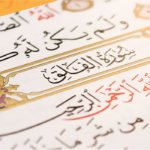 وَلَمْ يَكُن لَّهُ
سُورَةُ الْفَلَقِ
اللَّهِ الرَّحْمَٰنِ الرَّحِيمِ
مِن شَرِّ مَا